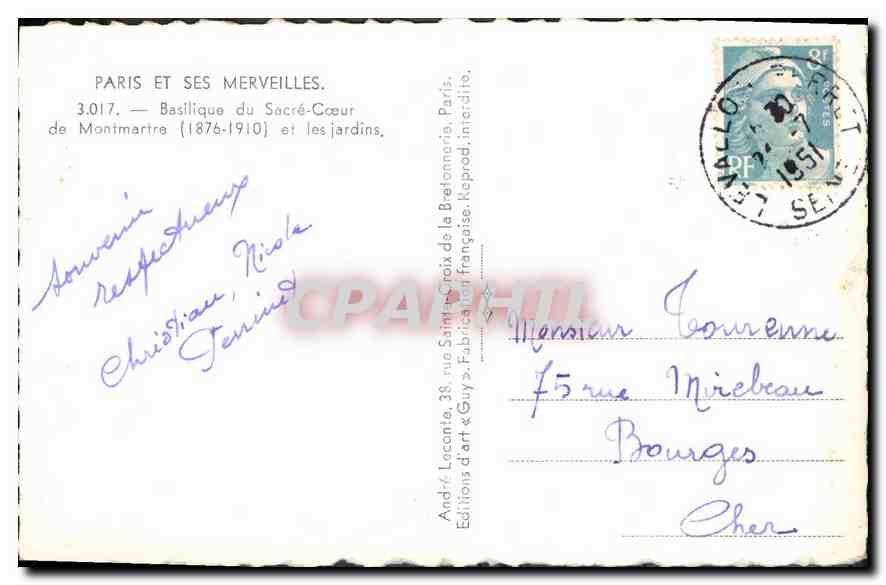 PARIS ET SES MERVEILLES.
3.017. — Basilique du Sacré-Cœur
de Montmartre (1876-1910) et les jardins.
Souvenir
respectueux
Christian, Nicole
André Leconte, 38, rue Sainte-Croix de la Bretonnerie, Paris.
Editions d'art «Guy». Fabrication française. Reprod. interdite.
CPARHTI
8F
POSTES
RF
LEVALLOIS PERRET
1951
SEINE
Monsieur Tourenne
75 rue Mirebeau
Bourges
Cher